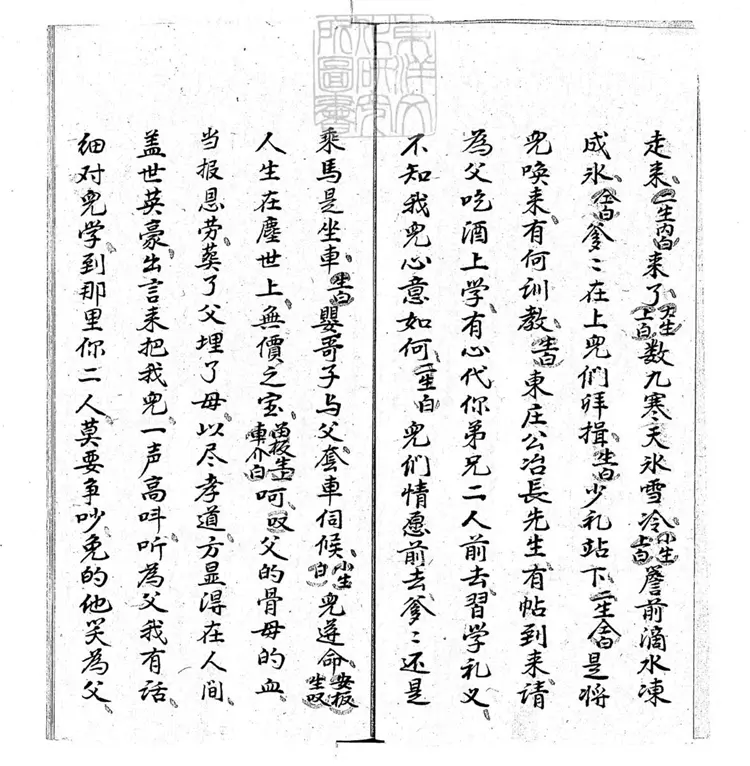 走来二生内白来了大生上白数九寒天氷雪冷小生上白詹前滴水凍
成氷仝白爹〻在上兒们拜揖生白少礼站下二生仝白是将
兒喚来有何训教生白東庄公冶長先生有帖到来请
為父吃酒上学有心代你弟兄二人前去習学礼义
不知我兒心意如何二生白兒们情愿前去爹〻还是
乘馬是坐車生白嬰哥子与父套車伺候小生白兒遵命安板生叹
人生在塵世上無價之宝車介白呵叹父的骨母的血
当报恩劳葬了父埋了母以尽孝道方显淂在人间
盖世英豪出言来把我兒一声高呌听為父我有话
细对兒学到那里你二人莫要争吵免的他笑為父
東洋文化研究所圖書